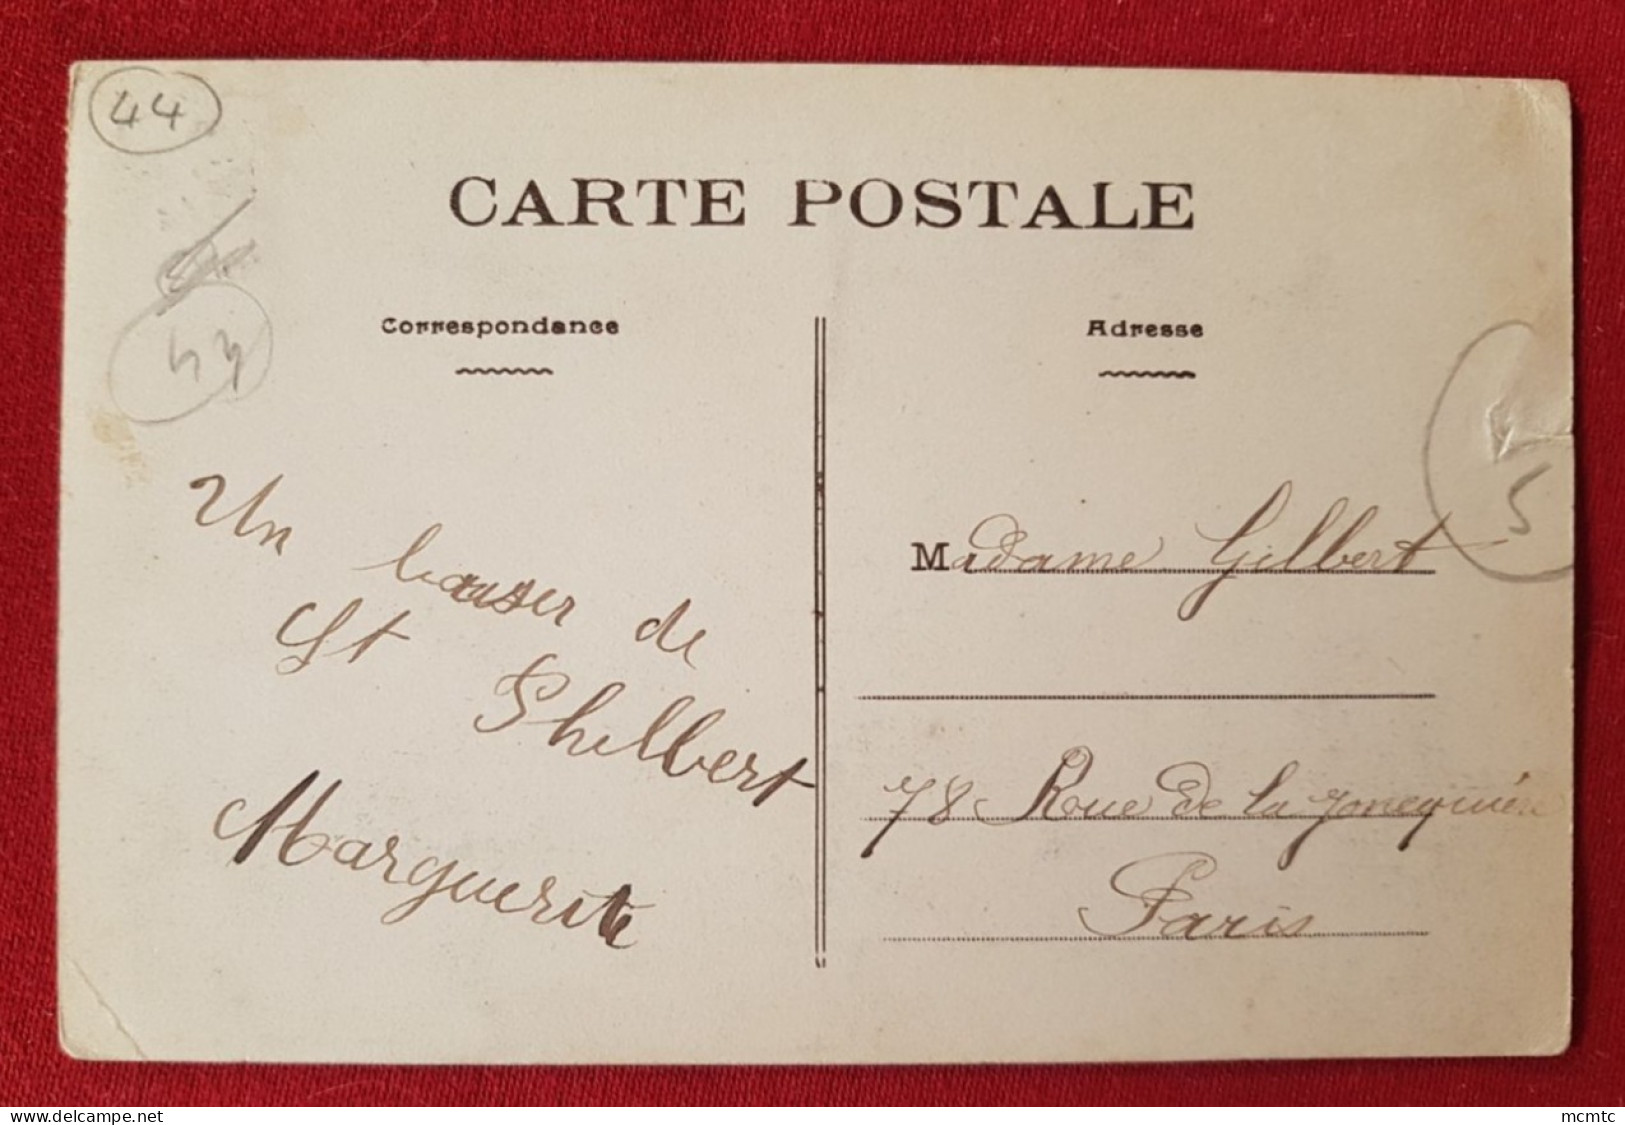 44
CARTE POSTALE
44
Correspondance
Adresse
Un baiser de
St Philbert
Marguerite
Madame Gilbert
78 Rue de la Jonequière
Paris
5
www.delcampe.net
mcmtc